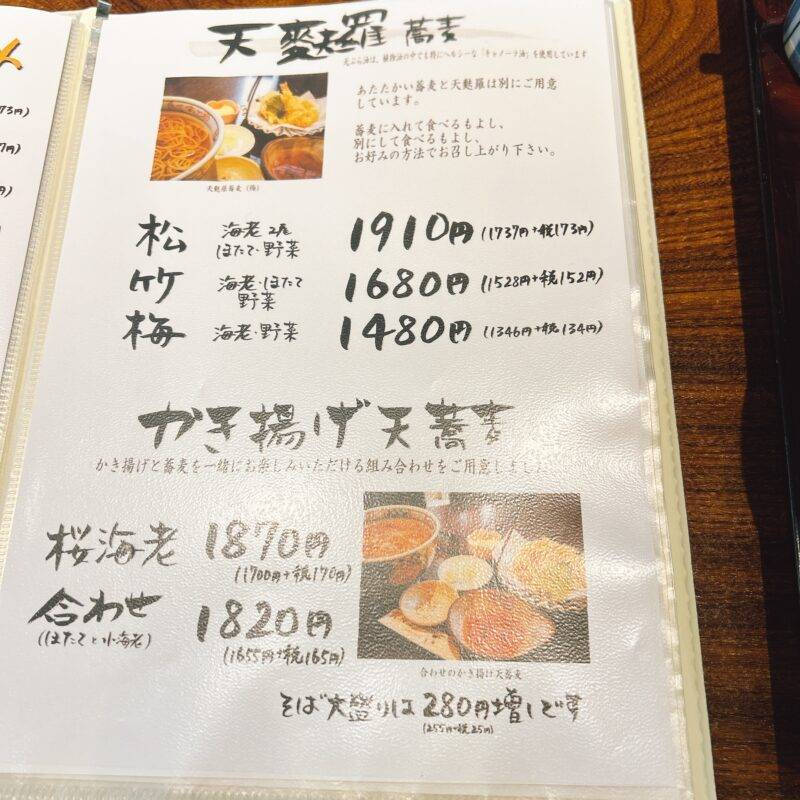 天麩羅蕎麦
天ぷら油は、植物油の中でも特にヘルシーな「キャノーラ油」を使用しています
あたたかい蕎麦と天麩羅は別にご用意
しています。
蕎麦に入れて食べるもよし、
別にして食べるもよし、
お好みの方法でお召し上がり下さい。
天麩羅蕎麦（梅）
松 海老2尾 ほたて・野菜 1910円 (1737円+税173円)
竹 海老・ほたて 野菜 1680円 (1528円+税152円)
梅 海老・野菜 1480円 (1346円+税134円)
かき揚げ天蕎麦
かき揚げと蕎麦を一緒にお楽しみいただける組み合わせをご用意しました
桜海老 1870円
(1700円+税170円)
合わせ 1820円
(ほたてと小海老)
(1655円+税165円)
合わせのかき揚げ天蕎麦
そば大盛りは280円増しです
(255円+税25円)
73円)
7円)
円)